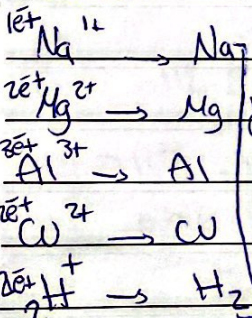 1e⁻+ Na¹⁺ → Na
2e⁻+ Mg²⁺ → Mg
3e⁻+ Al³⁺ → Al
2e⁻+ Cu²⁺ → Cu
2e⁻+ 2H⁺ → H₂